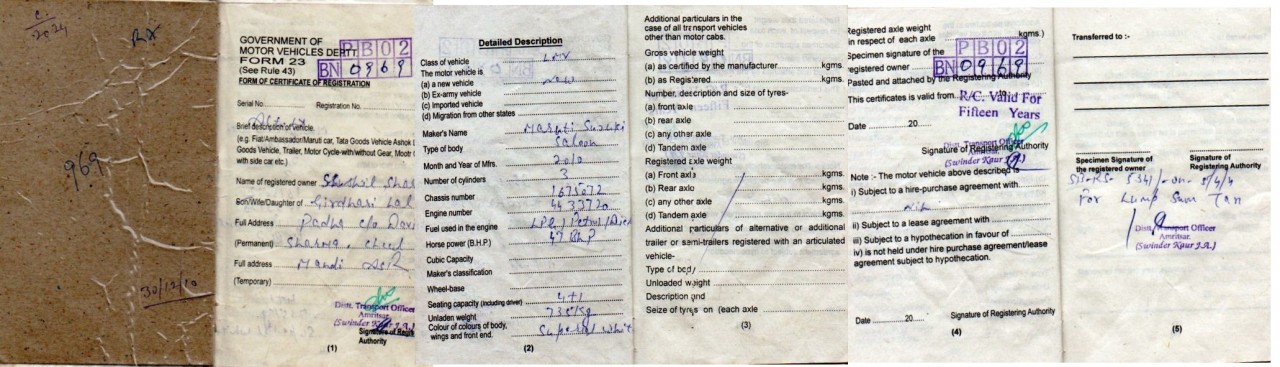 2024
969
30/12/10
GOVERNMENT OF
MOTOR VEHICLES DEPTT
PB02
FORM 23
(See Rule 43)
BN 0969
FORM OF CERTIFICATE OF REGISTRATION
Serial No. Registration No.
Brief description of vehicle
(e.g. Fiat/Ambassador/Maruti car, Tata Goods Vehicle Ashok
Goods Vehicle, Trailer, Motor Cycle-with/without Gear, Mootr
with side car etc.)
Name of registered owner Shushil Shar
Son/Wife/Daughter of Girdhari Lal
Full Address Padha c/o
(Permanent) Sharma, Chowl
Full address Mandi ASR
(Temporary)
Distt. Transport Officer
Amritsar.
(Swinder Kaur J.A.)
Signature of Regis
Authority
(1)
Detailed Description
Class of vehicle LMV
The motor vehicle is
(a) a new vehicle new
(b) Ex-army vehicle
(c) Imported vehicle
(d) Migration from other states
Maker's Name Maruti Suzuki
Type of body Saloon
Month and Year of Mfrs. 2010
Number of cylinders 3
Chassis number 1675072
Engine number 4433720
Fuel used in the engine LPG/Petrol/
Horse power (B.H.P.) 47 BHP
Cubic Capacity
Maker's classification
Wheel-base
Seating capacity (including driver) 4+1
Unladen weight 735 Kg
Colour of colours of body,
wings and front end. Superior white
(2)
Additional particulars in the
case of all transport vehicles
other than motor cabs.
Gross vehicle weight
(a) as certified by the manufacturer kgms.
(b) as Registered kgms.
Number, description and size of tyres-
(a) front axle
(b) rear axle
(c) any other axle
(d) Tandem axle
Registered axle weight
(a) Front axle kgms.
(b) Rear axle kgms.
(c) any other axle kgms.
(d) Tandem axle kgms.
Additional particulars of alternative or additional
trailer or semi-trailers registered with an articulated
vehicle-
Type of body
Unloaded weight
Description and
Seize of tyres on (each axle
(3)
Registered axle weight
in respect of each axle kgms.)
Specimen signature of the
registered owner
PB02
BN 0969
Pasted and attached by the Registering Authority
This certificates is valid from to
R/C. Valid For
Fifteen Years
Date 20
Signature of Registering Authority
Distt. Transport Officer
Amritsar.
(Swinder Kaur J.A.)
Note :- The motor vehicle above described is
i) Subject to a hire-purchase agreement with
Nil
ii) Subject to a lease agreement with
iii) Subject to a hypothecation in favour of
iv) is not held under hire purchase agreement/lease
agreement subject to hypothecation.
Date 20 Signature of Registering Authority
(4)
Transferred to :-
Specimen Signature of
the registered owner
Signature of
Registering Authority
For Lump Sum Tax
Distt. Transport Officer
Amritsar.
(Swinder Kaur J.A.)
(5)